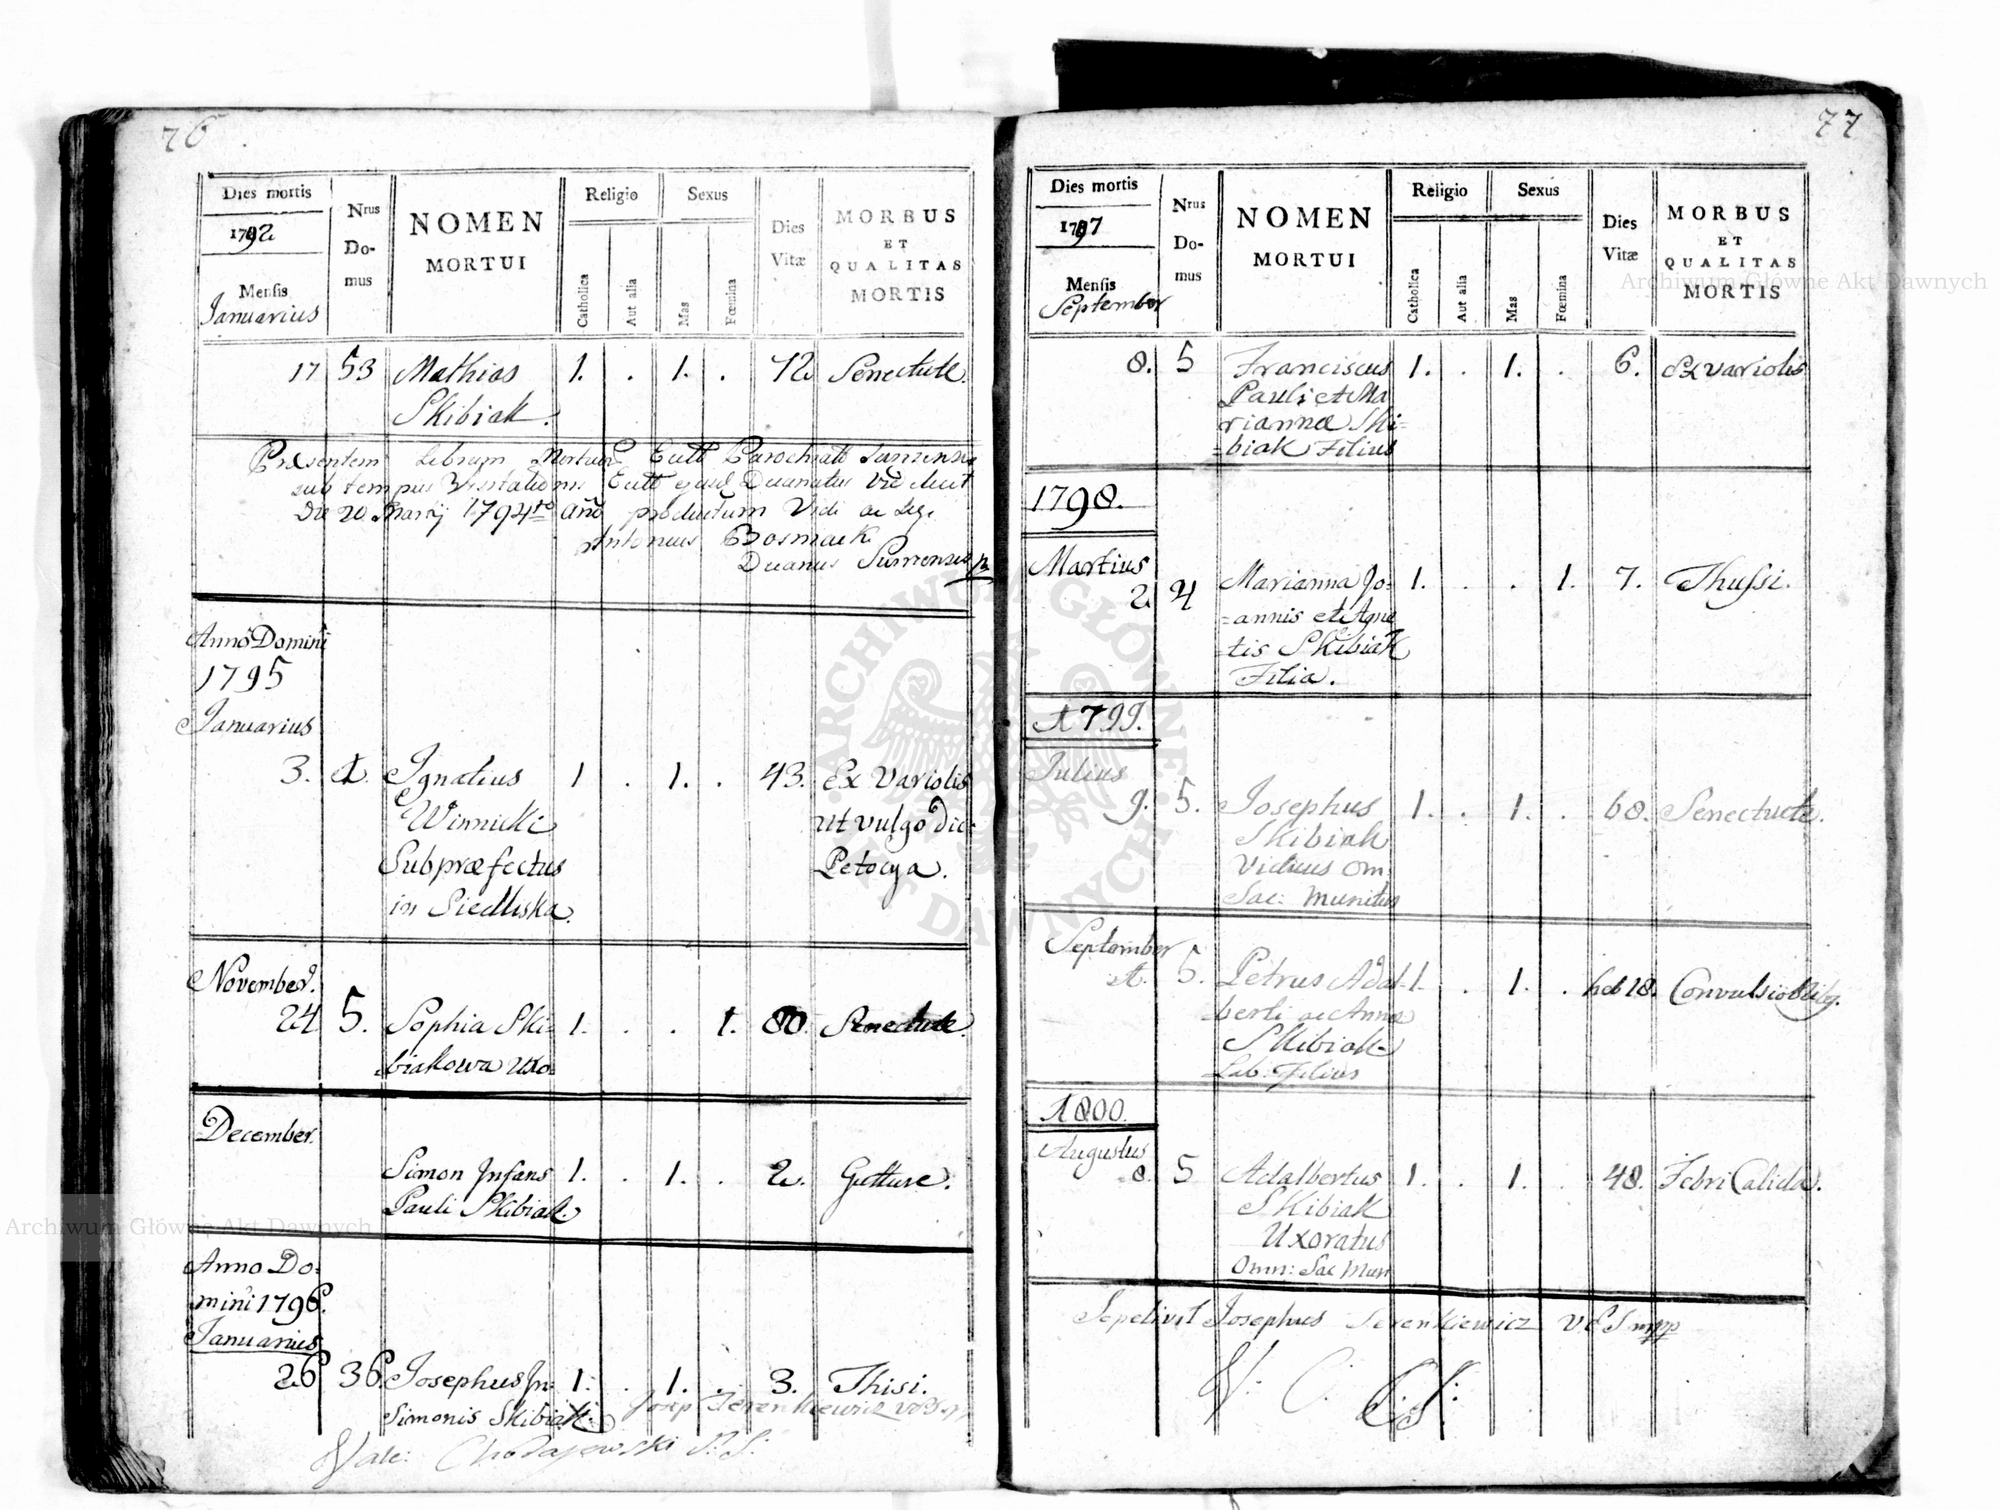 76
Dies mortis
1792
Mensis
Januarius
Nrus
Do-
mus
NOMEN
MORTUI
Religio
Catholica
Aut alia
Sexus
Mas
Fœmina
Dies
Vitæ
MORBUS
ET
QUALITAS
MORTIS
17 53 Mathias 1. . 1. . 72 Senectute.
Skibiak.
Præsentem Librum Mortuor Eccl Parochial
sub tempus Visitationis Eccl ejusd Decanatus
Die 20 Martij 1794to año productum Vidi ac Legi
Antonius
Decanus
Anno Domini
1795
Januarius
3. 1. Ignatius 1 . 1. . 43. Ex Variolis
Winnicki ut vulgo dic:
Subpræfectus Petocya.
in Siedliska.
November.
24 5. Sophia Ski- 1. . . 1. 80. Senectute.
biakowa uxo-
December.
Simon Infans 1. . 1. . 2. Gutture.
Pauli Skibiak.
Anno Do-
mini 1796.
Januarius
26 36. Josephus In- 1. . 1. . 3. Thisi.
Simonis Skibiak.
Josep Serenkiewicz
Wale: Chodajewski S: S:
77
Dies mortis
1797
Mensis
September
Nrus
Do-
mus
NOMEN
MORTUI
Religio
Catholica
Aut alia
Sexus
Mas
Fœmina
Dies
Vitæ
MORBUS
ET
QUALITAS
MORTIS
8. 5 Franciscus 1. . 1. . 6. Ex variolis
Pauli et Ma
riannæ Ski=
=biak Filius
1798.
Martius
2 4 Marianna Jo- 1. . . 1. 7. Thussi.
=annis et Agne
=tis Skibiak
Filia.
1799.
Julius
9. 5. Josephus 1. . 1. . 68. Senectute.
Skibiak
Viduus Om.
Sac: munitus
September
1. 5. Petrus Adal- 1. . 1. . heb 18. Convulsio
berti ac Annæ
Skibiak
Lab: Filius
1800.
Augustus
8. 5 Adalbertus 1. . 1. . 48. Febri Calida.
Skibiak
Uxoratus
Omn: Sac Mun
Sepelivit Josephus Serenkiewicz
Archiwum Główne Akt Dawnych
Archiwum Główne Akt Dawnych
ARCHIWUM GŁÓWNE AKT DAWNYCH